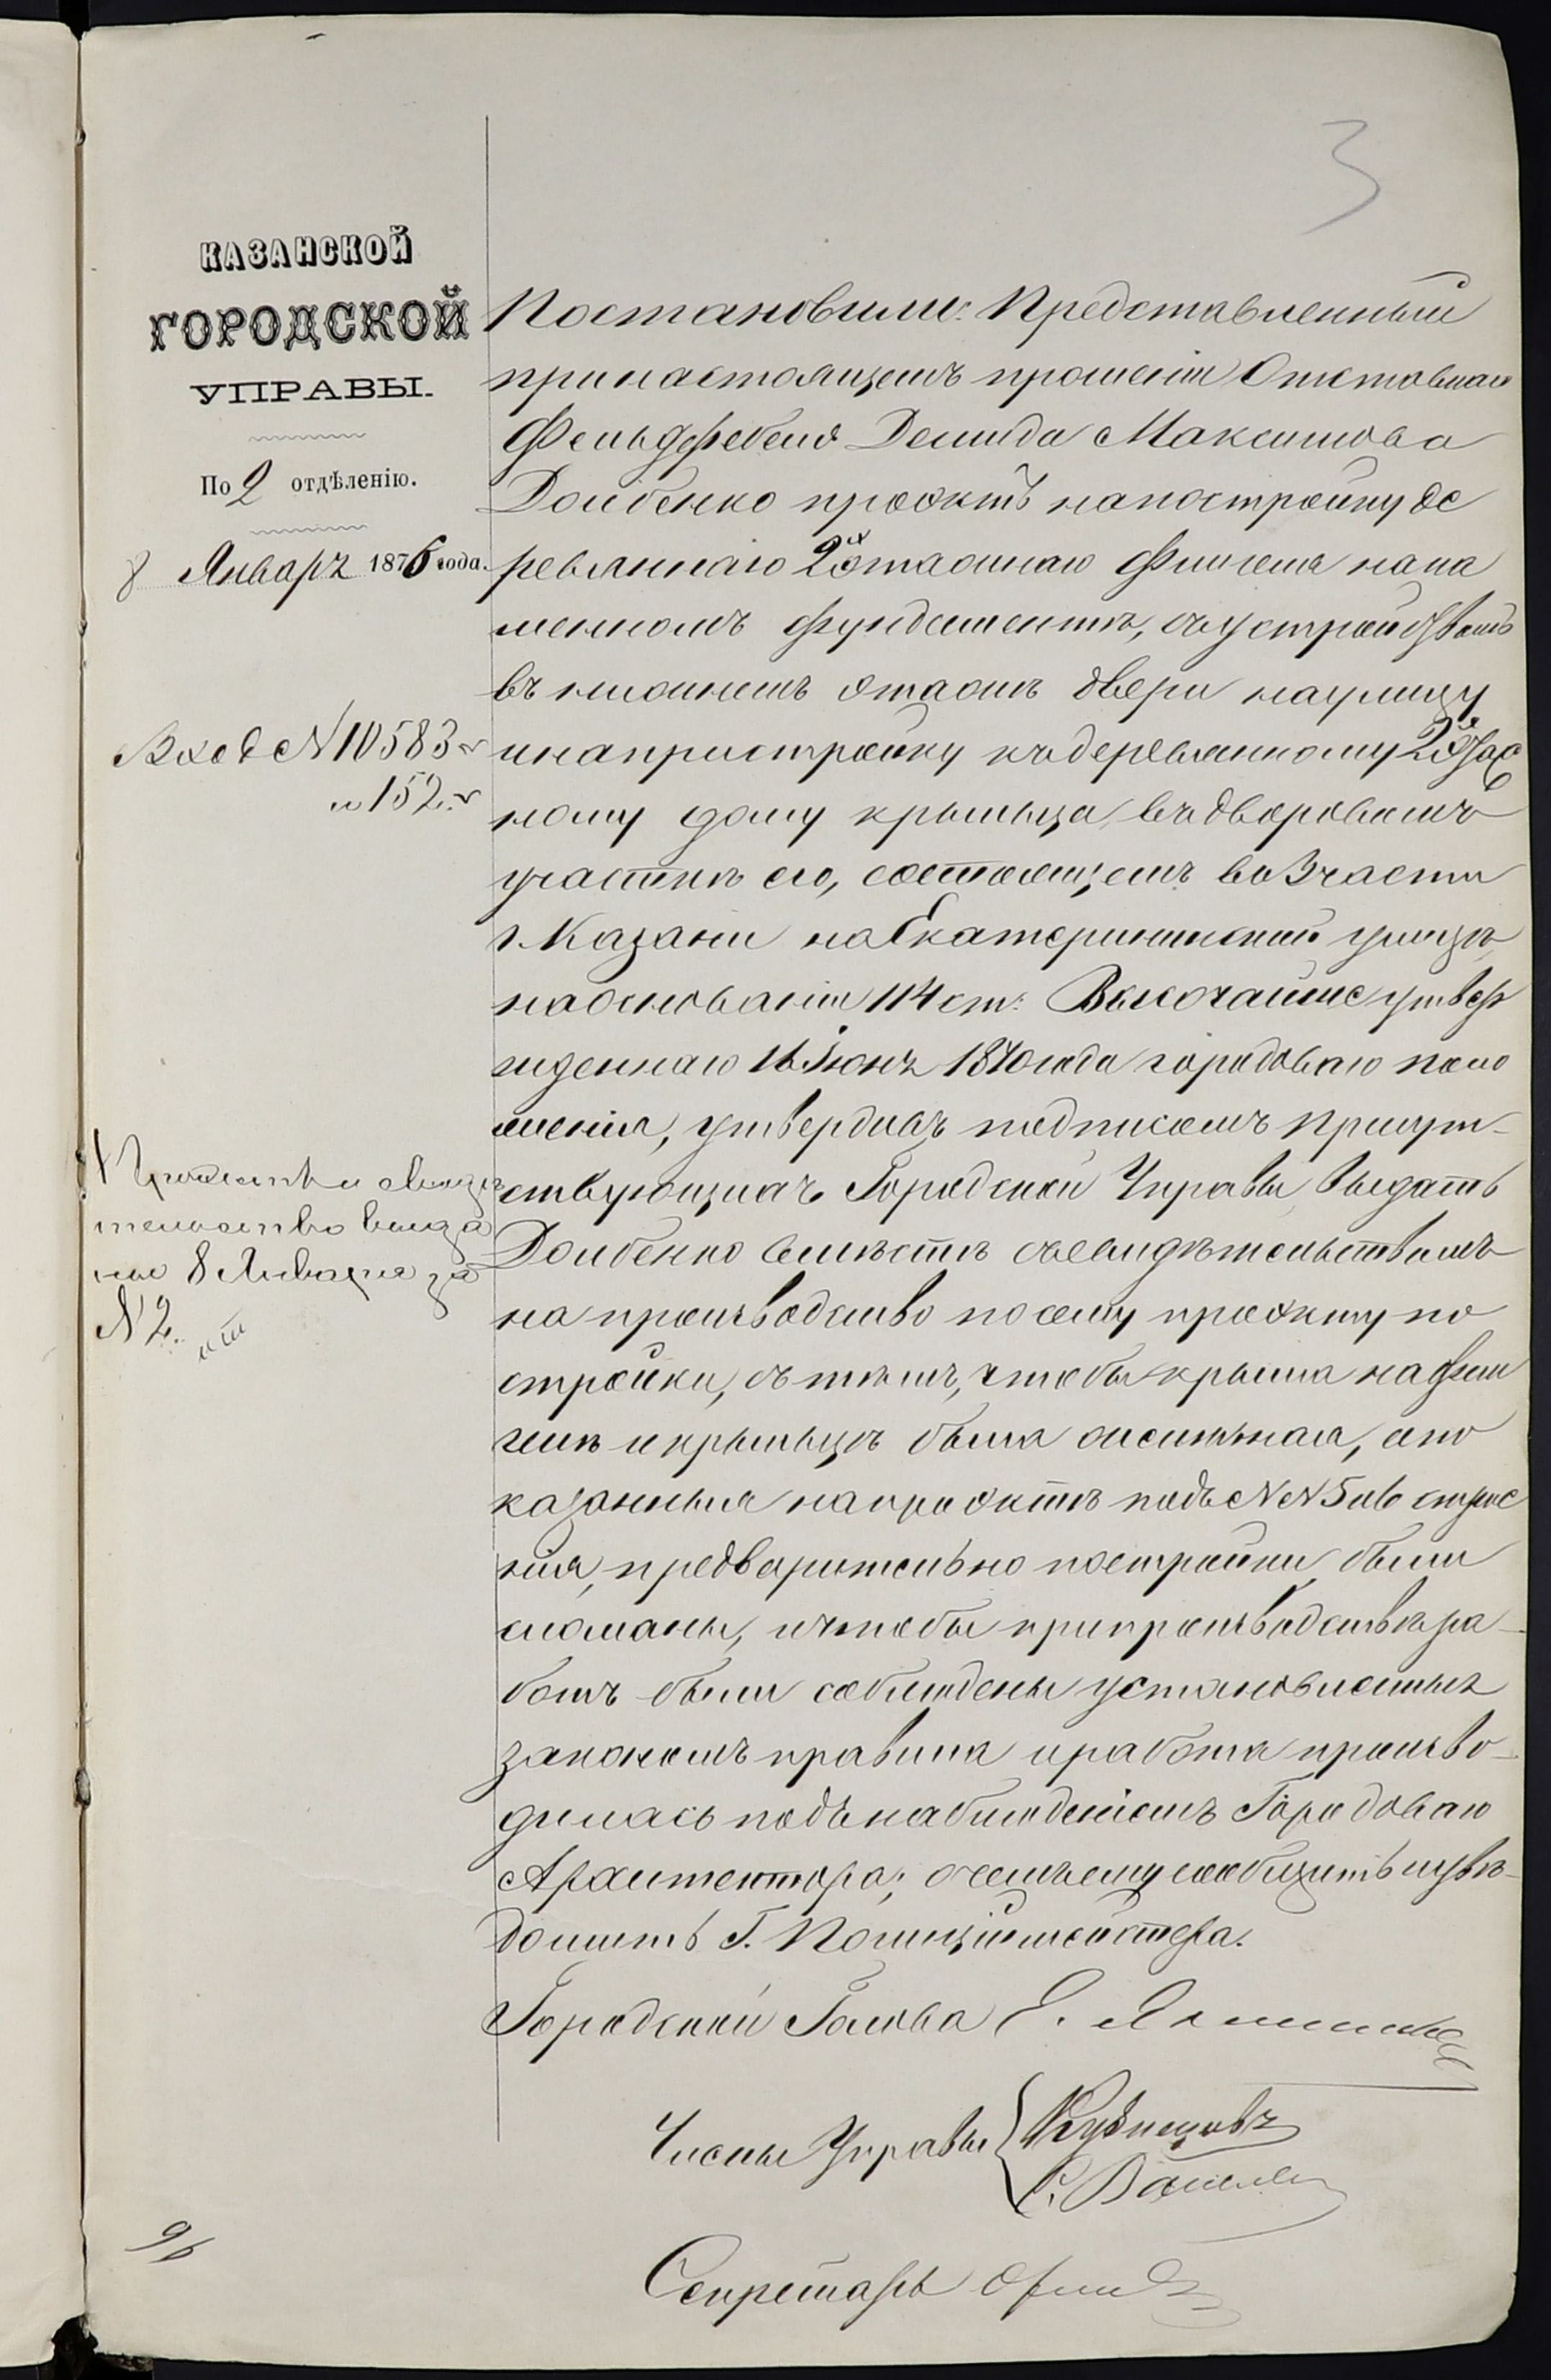 3
КАЗАНСКОЙ
ГОРОДСКОЙ
УПРАВЫ.
По 2 отдѣленію.
8 Января 1876 года.
Вход № 10583
и 152.
Проектъ и свидѣ
тельство выда
ны 8 Января за
№ 2.
Постановили: Представленный
при настоящемъ прошеніи Отставнаго
Фельдфебеля Демида Максимова
Долбенко проэктъ на постройку де
ревяннаго 2х этажнаго флигеля на ка
менномъ фундаментѣ, съ устройствомъ
въ нижнемъ этажѣ двери на улицу
и на пристройку къ деревянному 2х этаж
ному дому крыльца, въ дворовомъ
участкѣ его, состоящемъ во 3 части
г. Казани на Екатерининской улицѣ,
на основаніи 114 ст. Высочайше утвер
жденнаго 16 Іюня 1870 года городоваго поло
женія, утвердивъ подписомъ присут-
ствующихъ Городской Управы, выдать
Долбенко вмѣстѣ съ свидѣтельствомъ
на производство по сему проэкту по
стройки, съ тѣмъ, чтобы крыша на фли
гелѣ и крыльцѣ была желѣзная, а по
казанныя на проэктѣ подъ №№ 5 и 6 строе
нія, предварительно постройки, были
сломаны, и чтобы при производствѣ ра-
ботъ были соблюдены установленныя
закономъ правила и работа произво-
дилась подъ наблюденіемъ Городоваго
Архитектора; о чемъ ему сообщить и увѣ-
домить Г. Полиціймейстера.
Городской Голова Е.
Члены Управы Кузнецовъ
С.
Секретарь
96